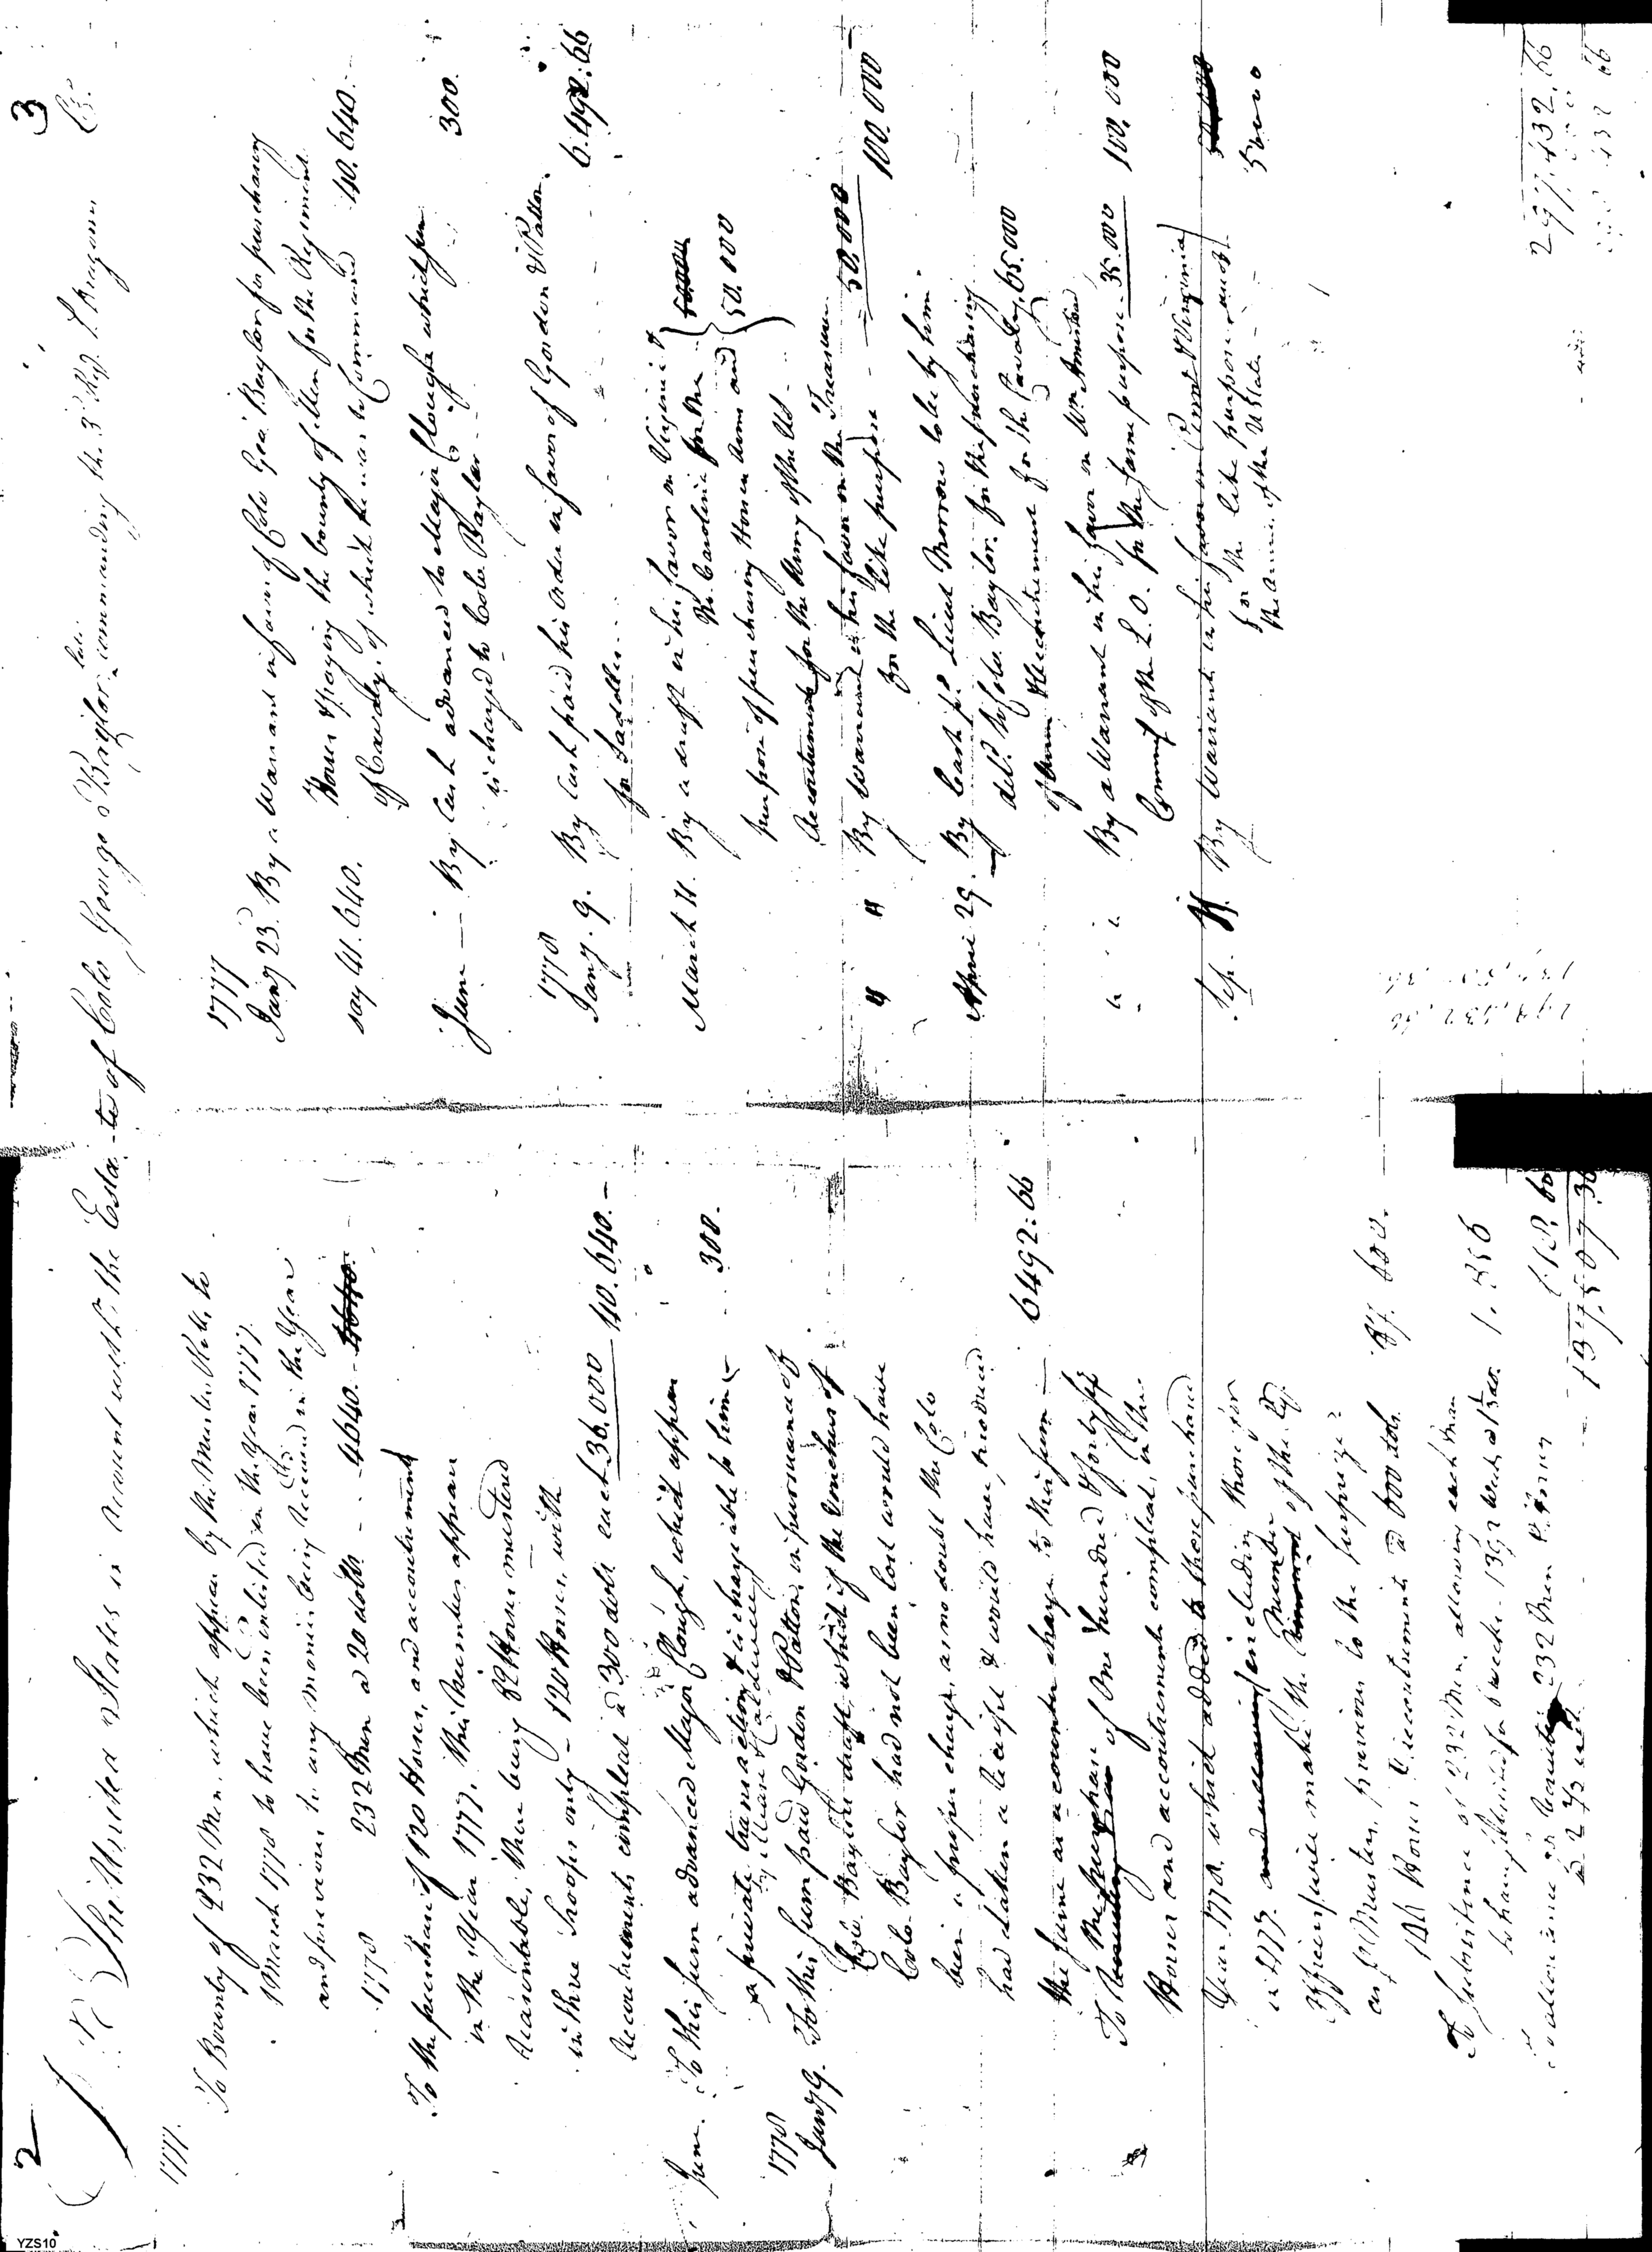 2
Dr The United States in Account with the Estate of Colo George Baylor late commanding the 3d Regt L. Dragoons Cr.
1777.
To Bounty of 232 Men, which appear by the Muster Rolls to
March 1778 to have been enlisted in the Year 1777.
and previous to any Monies being Accounted in the Year
1778 232 Men a 20 dolls - - 4640.
To the purchase of 120 Horses, and accoutrements
in the Year 1777, this number appear
reasonable, there being 82 Horses mustered
in three Troops only - 120 Horses, with
Accoutrements compleat a 300 dolls each 36.000 40.640.-
June. To this sum advanced Major Clough, which appear
a private transaction & is chargeable to him 300.
1778
Jany 9. To this sum paid Gordon & Patton, in pursuance of
Colo Baylors draft, which if the Vouchers of
Colo Baylor had not been lost would have
been a proper charge, as no doubt the Colo
had taken a Receipt & would have produced
the same as a counter charge to this sum - 6492:66
To the purchase of One hundred & forty six
Horses and accoutrements compleat, in the
Year 1778. which added to those purchased
in 1777. including those for
Officers use make the Number of the Regt
as pr Muster, previous to the surprize
146 Horses & Accoutrements a 600 dolls 87.600.
To Subsistence of 232 Men allowing each Man
1392 Weeks a 1⅓ dol. 1.856
232 Men
a 2⅔ each 618.60
137,507.36
3
1777
Jany 23. By a Warrant in favour of Colo Geo. Baylor for purchasing
Horses & paying the bounty of Men for the Regiment
say 41.640. of Cavalry of which he was to Command 40.640.
June - By Cash advanced to Major Clough which sum
is charged to Colo Baylor - 300.
1778
Jany. 9. By Cash paid his order in favor of Gordon & Patton,
for Saddles 6.492:66
March 11. By a draft in his favor on Virginia &
No. Carolina for the
purpose of purchasing Horses Arms and 50.000
Accoutrements for the Army of the US.
" " By Warrant in his favor on the Treasurer
for the like purpose - 50.000 100.000
April 29. By Cash pr Lieut Morrow to be by him
deld to Colo. Baylor. for the purchasing
of Arms Accoutrements for the Cavalry 65.000
" " By a Warrant in his favor on Wm Armistead
Commr of the L.O. for the same purpose. 35.000 100.000
Sep. By Warrant in his favor
for the like purpose
the Armies of the U State - 50000
297.432.66